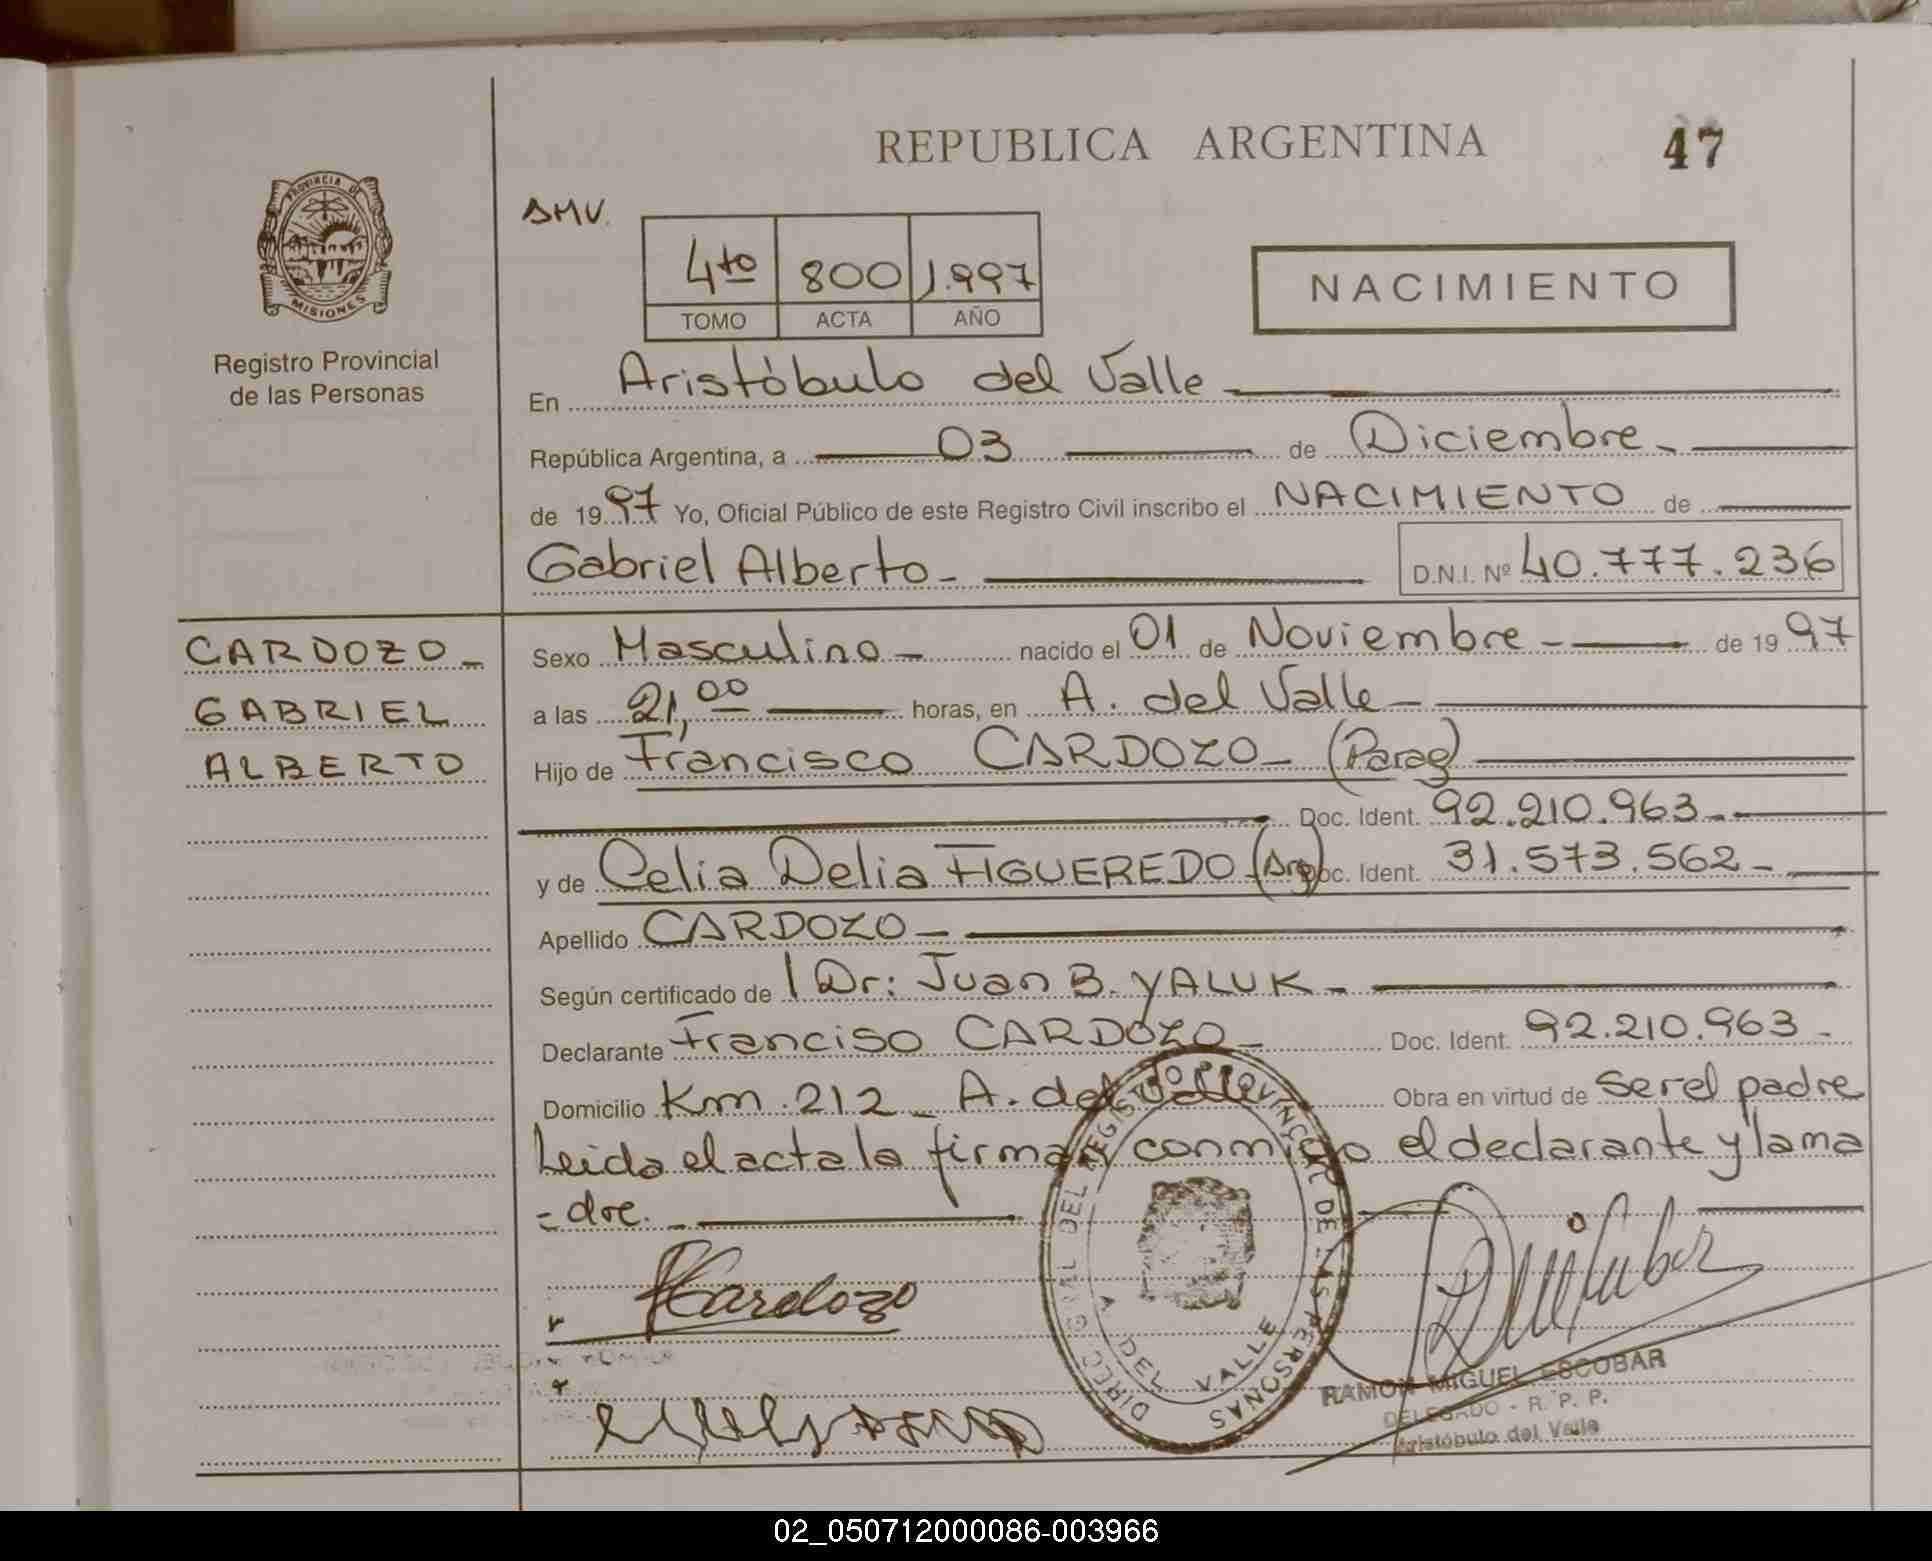 REPUBLICA ARGENTINA
47
PROVINCIA DE
MISIONES
Registro Provincial
de las Personas
4to 800 1.997
TOMO ACTA AÑO
NACIMIENTO
En Aristóbulo del Valle
República Argentina, a 03 de Diciembre
de 1997 Yo, Oficial Público de este Registro Civil inscribo el NACIMIENTO de
Gabriel Alberto - D.N.I. Nº 40.777.236
CARDOZO -
GABRIEL
ALBERTO
Sexo Masculino - nacido el 01 de Noviembre - de 1997
a las 21,00 horas, en A. del Valle -
Hijo de Francisco CARDOZO - (Parag)
Doc. Ident. 92.210.963 -
y de Celia Delia FIGUEREDO (Arg) Doc. Ident. 31.573.562 -
Apellido CARDOZO -
Según certificado de Dr: Juan B. YALUK -
Declarante Franciso CARDOZO - Doc. Ident. 92.210.963 -
Domicilio Km. 212 - A. del Valle Obra en virtud de ser el padre
Leida el acta la firman conmigo el declarante y la ma
- dre. -
Cardozo
DIREC. GRAL DEL REGISTRO PROVINCIAL DE LAS PERSONAS
A. DEL VALLE
RAMON MIGUEL ESCOBAR
DELEGADO - R. P. P.
Aristóbulo del Valle
02_050712000086-003966